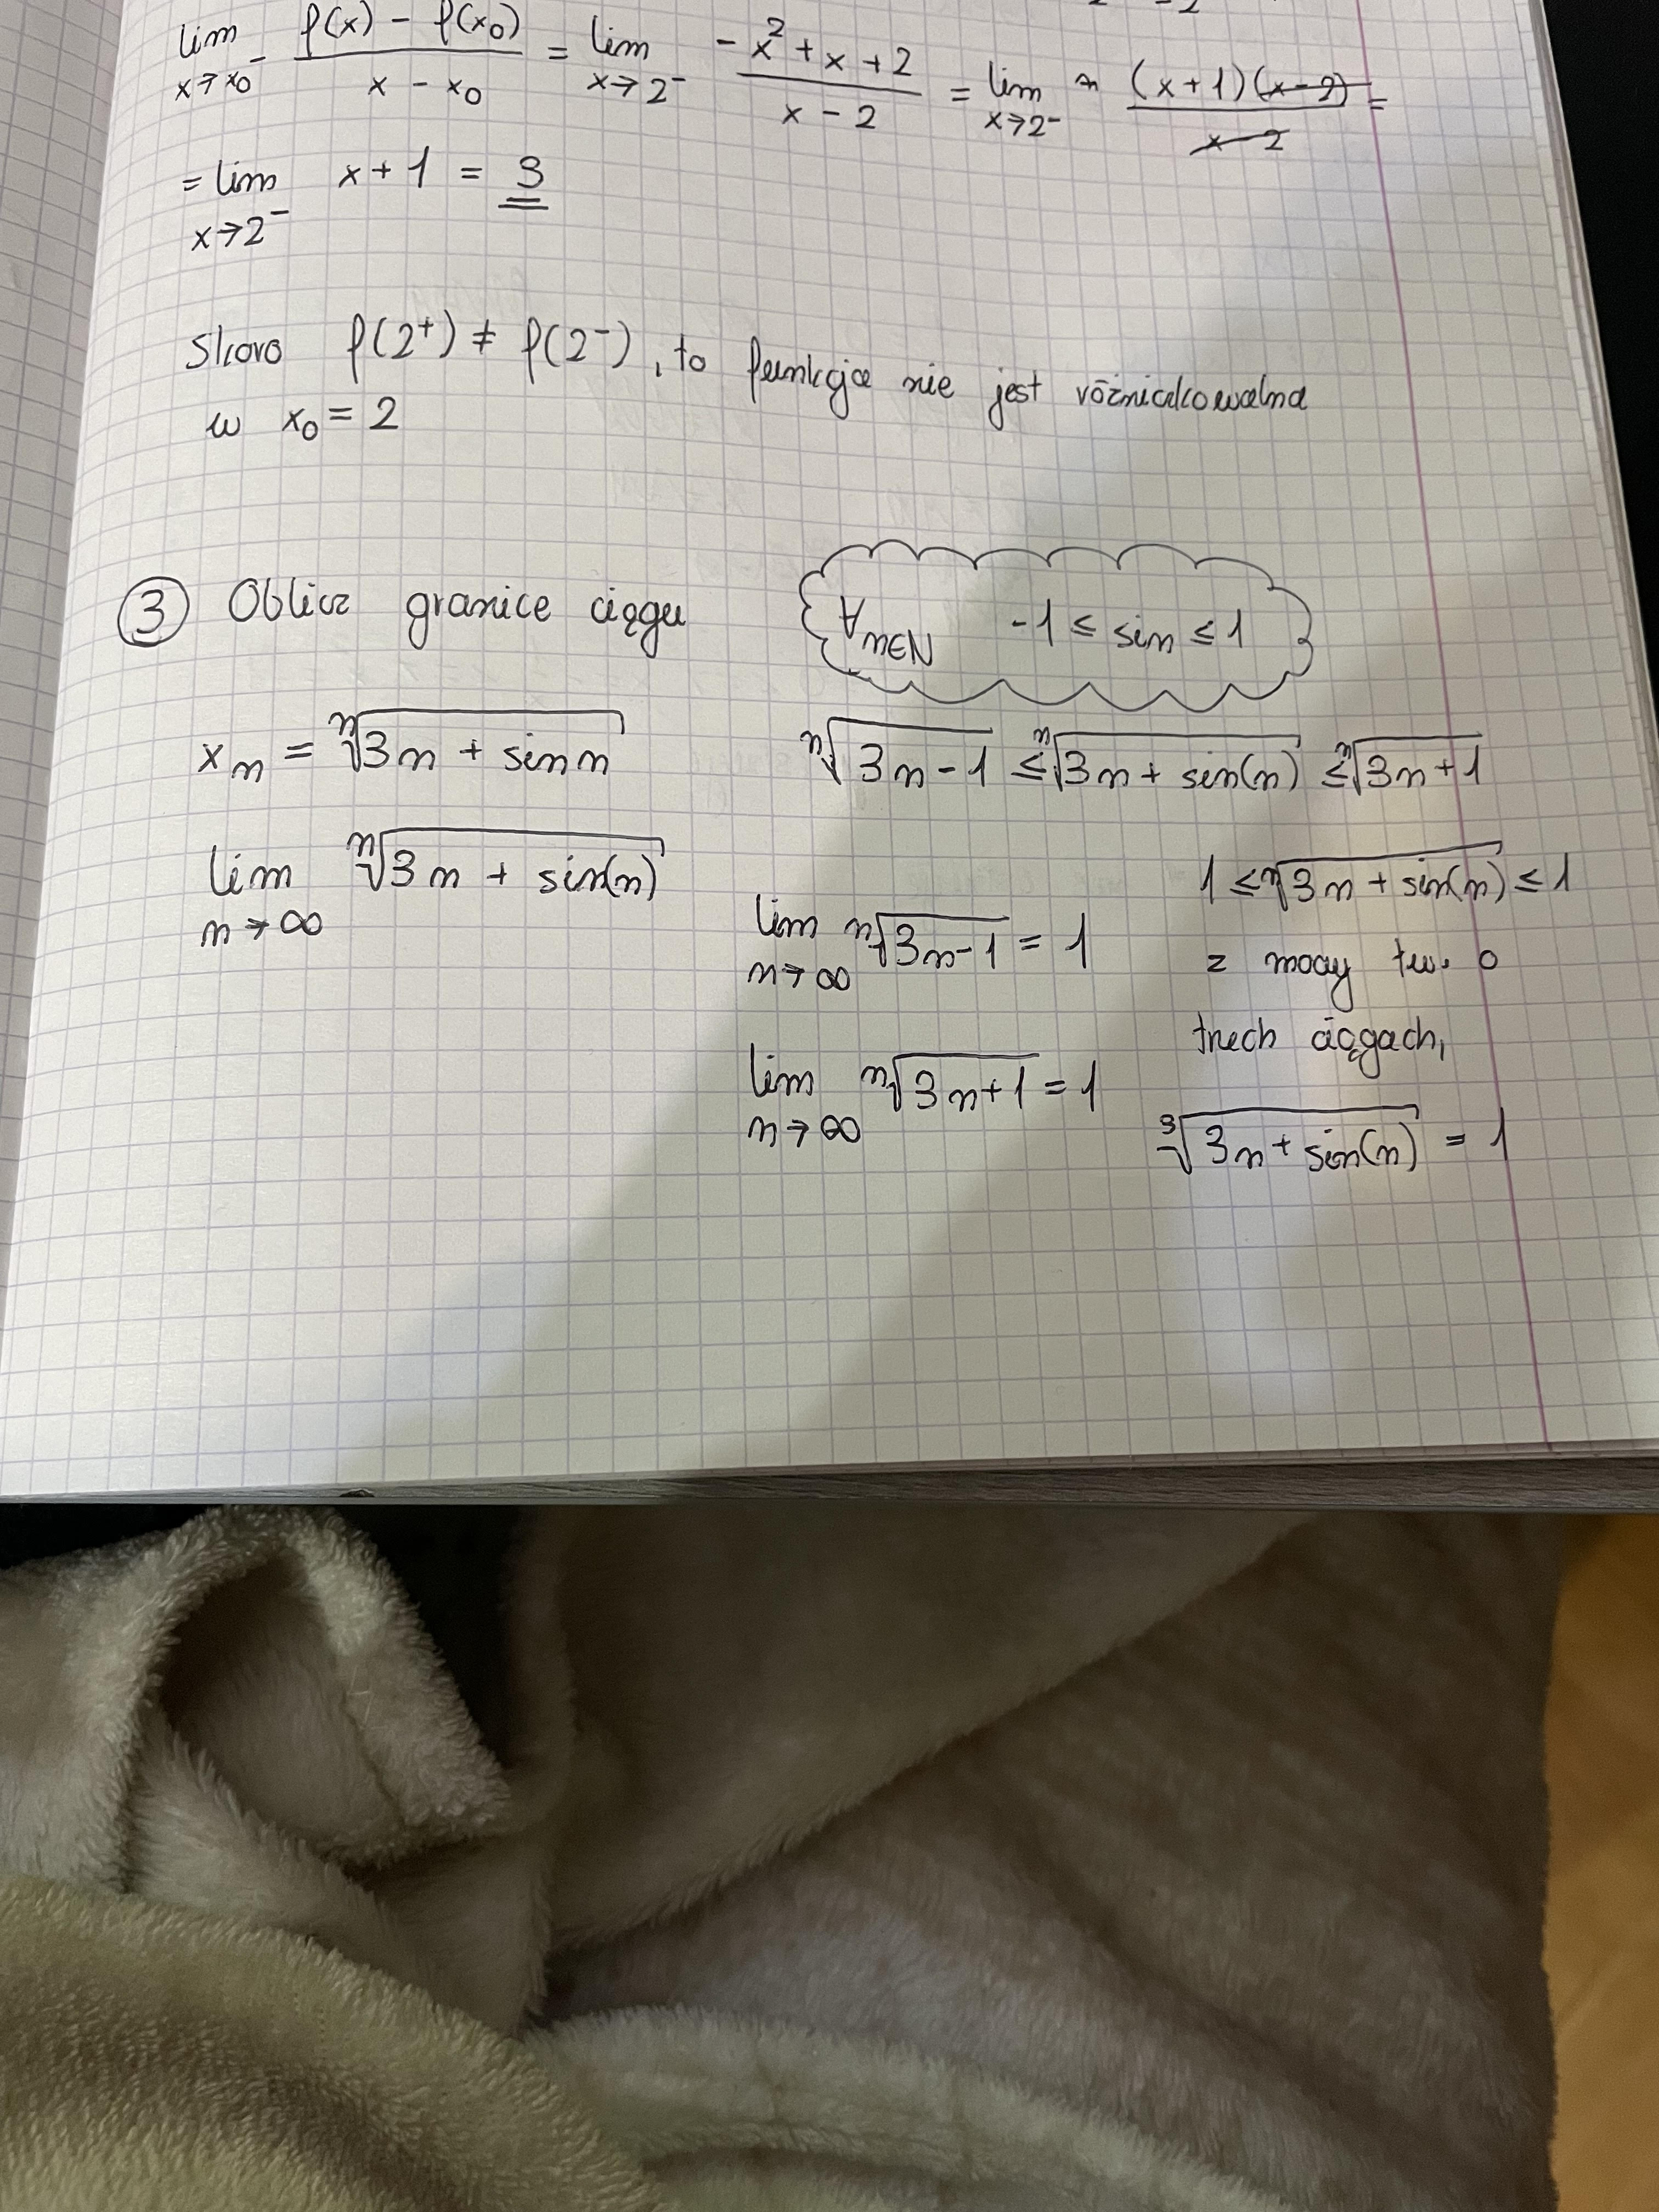 lim x→x₀⁻ (f(x) - f(x₀))/(x - x₀) = lim x→2⁻ (-x² + x + 2)/(x - 2) = lim x→2⁻ (x+1)(x-2)/(x-2) =
= lim x→2⁻ x+1 = 3
Skoro f(2⁺) ≠ f(2⁻), to funkcja nie jest różniczkowalna
w x₀ = 2
③ Oblicz granice ciągu
∀n∈N -1 ≤ sin ≤ 1
xₙ = ⁿ√(3n + sin n)
ⁿ√(3n-1) ≤ ⁿ√(3n + sin(n)) ≤ ⁿ√(3n+1)
lim n→∞ ⁿ√(3n + sin(n))
lim n→∞ ⁿ√(3n-1) = 1
lim n→∞ ⁿ√(3n+1) = 1
1 ≤ ⁿ√(3n + sin(n)) ≤ 1
z mocy tw. o
trzech ciągach,
³√(3n + sin(n)) = 1